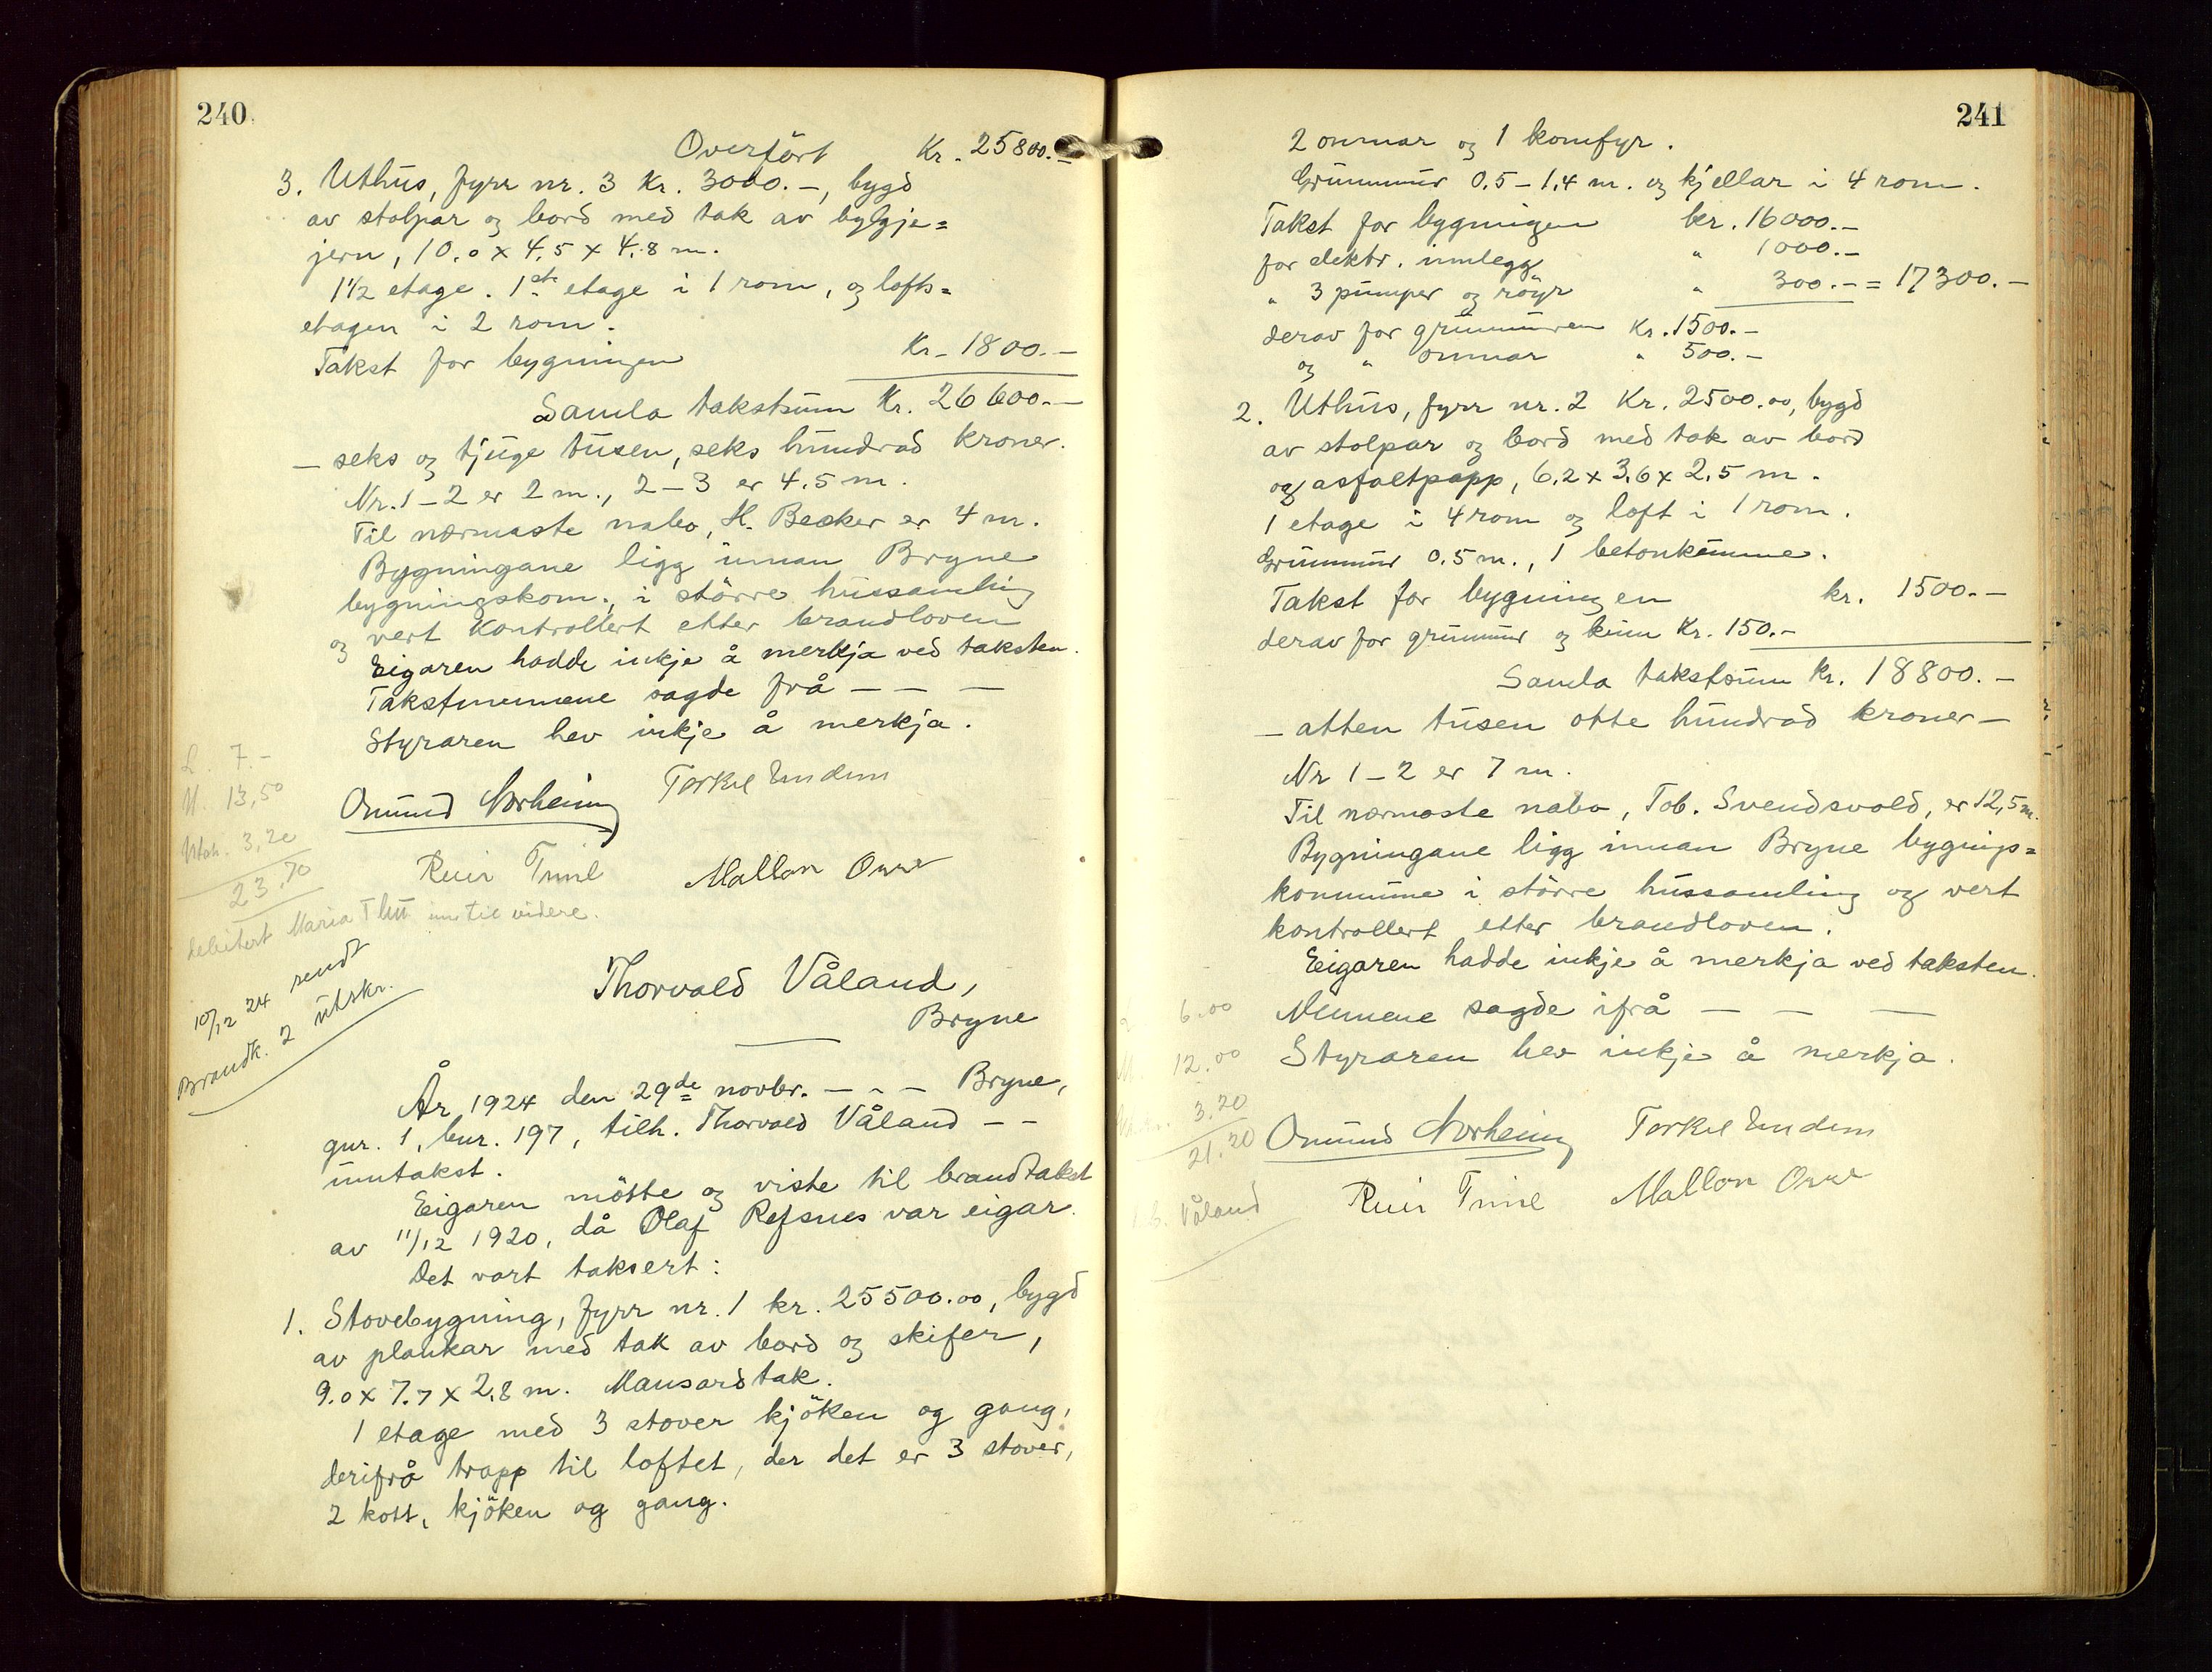 240
Overført Kr. 25800.–
3. Uthus, fyrr nr. 3 Kr. 3000.–, bygd
av stolpar og bord med tak av bylgje=
jern, 10.0 x 4.5 x 4.8 m.
1 1/2 etage. 1ste etage i 1 rom, og lofts=
etagen i 2 rom.
Takst for bygningen Kr. 1800.–
Samla takstsum Kr. 26600.–
– seks og tjuge tusen, seks hundrad kroner.
Nr. 1–2 er 2 m., 2–3 er 4.5 m.
Til nærmaste nabo, H. Becker er 4 m.
Bygningane ligg innan Bryne
bygningskom., i større hussamling
og vert kontrollert etter brandloven
Eigaren hadde inkje å merkja ved taksten.
Takstmennene sagde frå – – –
Styraren hev inkje å merkja.
L. 7.–
M. 13,50
Utsk. 3,20
23,70
Omund Norheim Torkel
debitert Maria inntil videre.
10/12 24 sendt
Brandk. 2 utskr.
Thorvald Våland,
Bryne
År 1924 den 29de novbr. – – – Bryne,
gnr. 1, bnr. 197, tilh. Thorvald Våland – –
umtakst.
Eigaren møtte og viste til brandtakst
av 11/12 1920, då Olaf Refsnes var eigar.
Det vart taksert:
1. Stovebygning, fyrr nr. 1 kr. 25500.00, bygd
av plankar med tak av bord og skifer,
9.0 x 7.7 x 2.8 m. Mansardtak.
1 etage med 3 stover kjøken og gang,
derifrå trapp til loftet, der det er 3 stover,
2 kott, kjøken og gang.
241
2 omnar og 1 komfyr.
Grunnmur 0.5–1.4 m. og kjellar i 4 rom.
Takst for bygningen kr. 16000.–
for elektr. innlegg " 1000.–
" 3 pumper og røyr " 300.– = 17300.–
derav for grunnmuren Kr. 1500.–
og " omnar " 500.–
2. Uthus, fyrr nr. 2 Kr. 2500.00, bygd
av stolpar og bord med tak av bord
og asfaltpapp, 6.2 x 3.6 x 2.5 m.
1 etage i 4 rom og loft i 1 rom.
Grunnmur 0.5 m., 1 betonkumme.
Takst for bygningen kr. 1500.–
derav for grunnmur og kum Kr. 150.–
Samla takstsum kr. 18800.–
– atten tusen otte hundrad kroner –
Nr 1–2 er 7 m.
Til nærmaste nabo, Tob. Svendsvold, er 12,5 m.
Bygningane ligg innan Bryne bygnings=
kommune i større hussamling og vert
kontrollert etter brandloven.
Eigaren hadde inkje å merkja ved taksten.
Mennene sagde ifrå – – –
Styraren hev inkje å merkja.
6.00
12.00
3.20
21.20
Omund Norheim Torkel
Våland